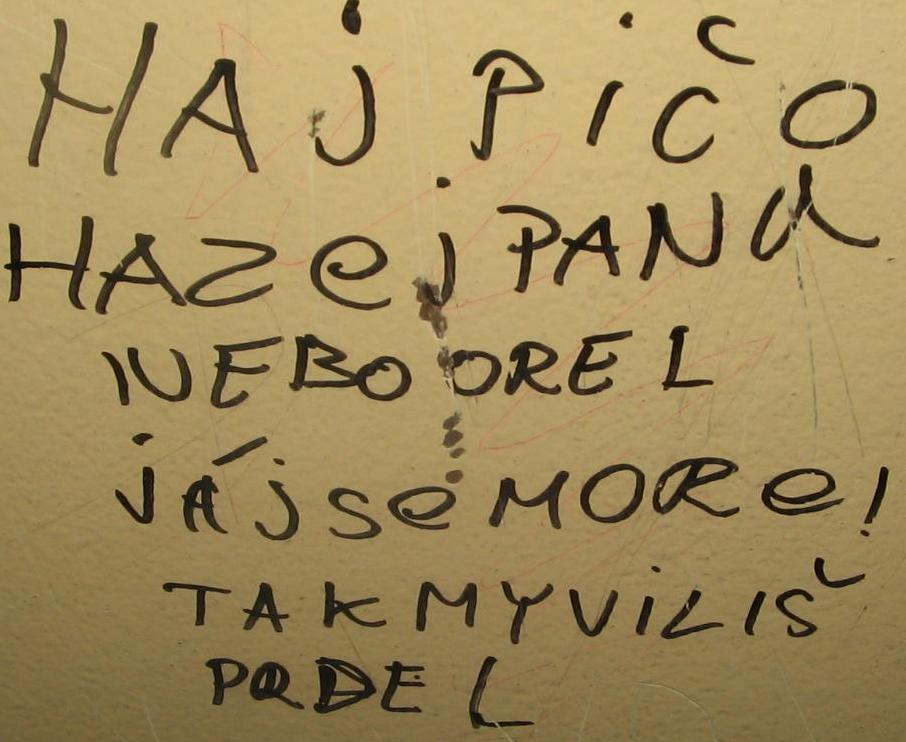 HAj PiČO
HAZej PANA
NEBO OREL
jÁ jSe MORe!
TAK MY ViLiŠ
PRDEL